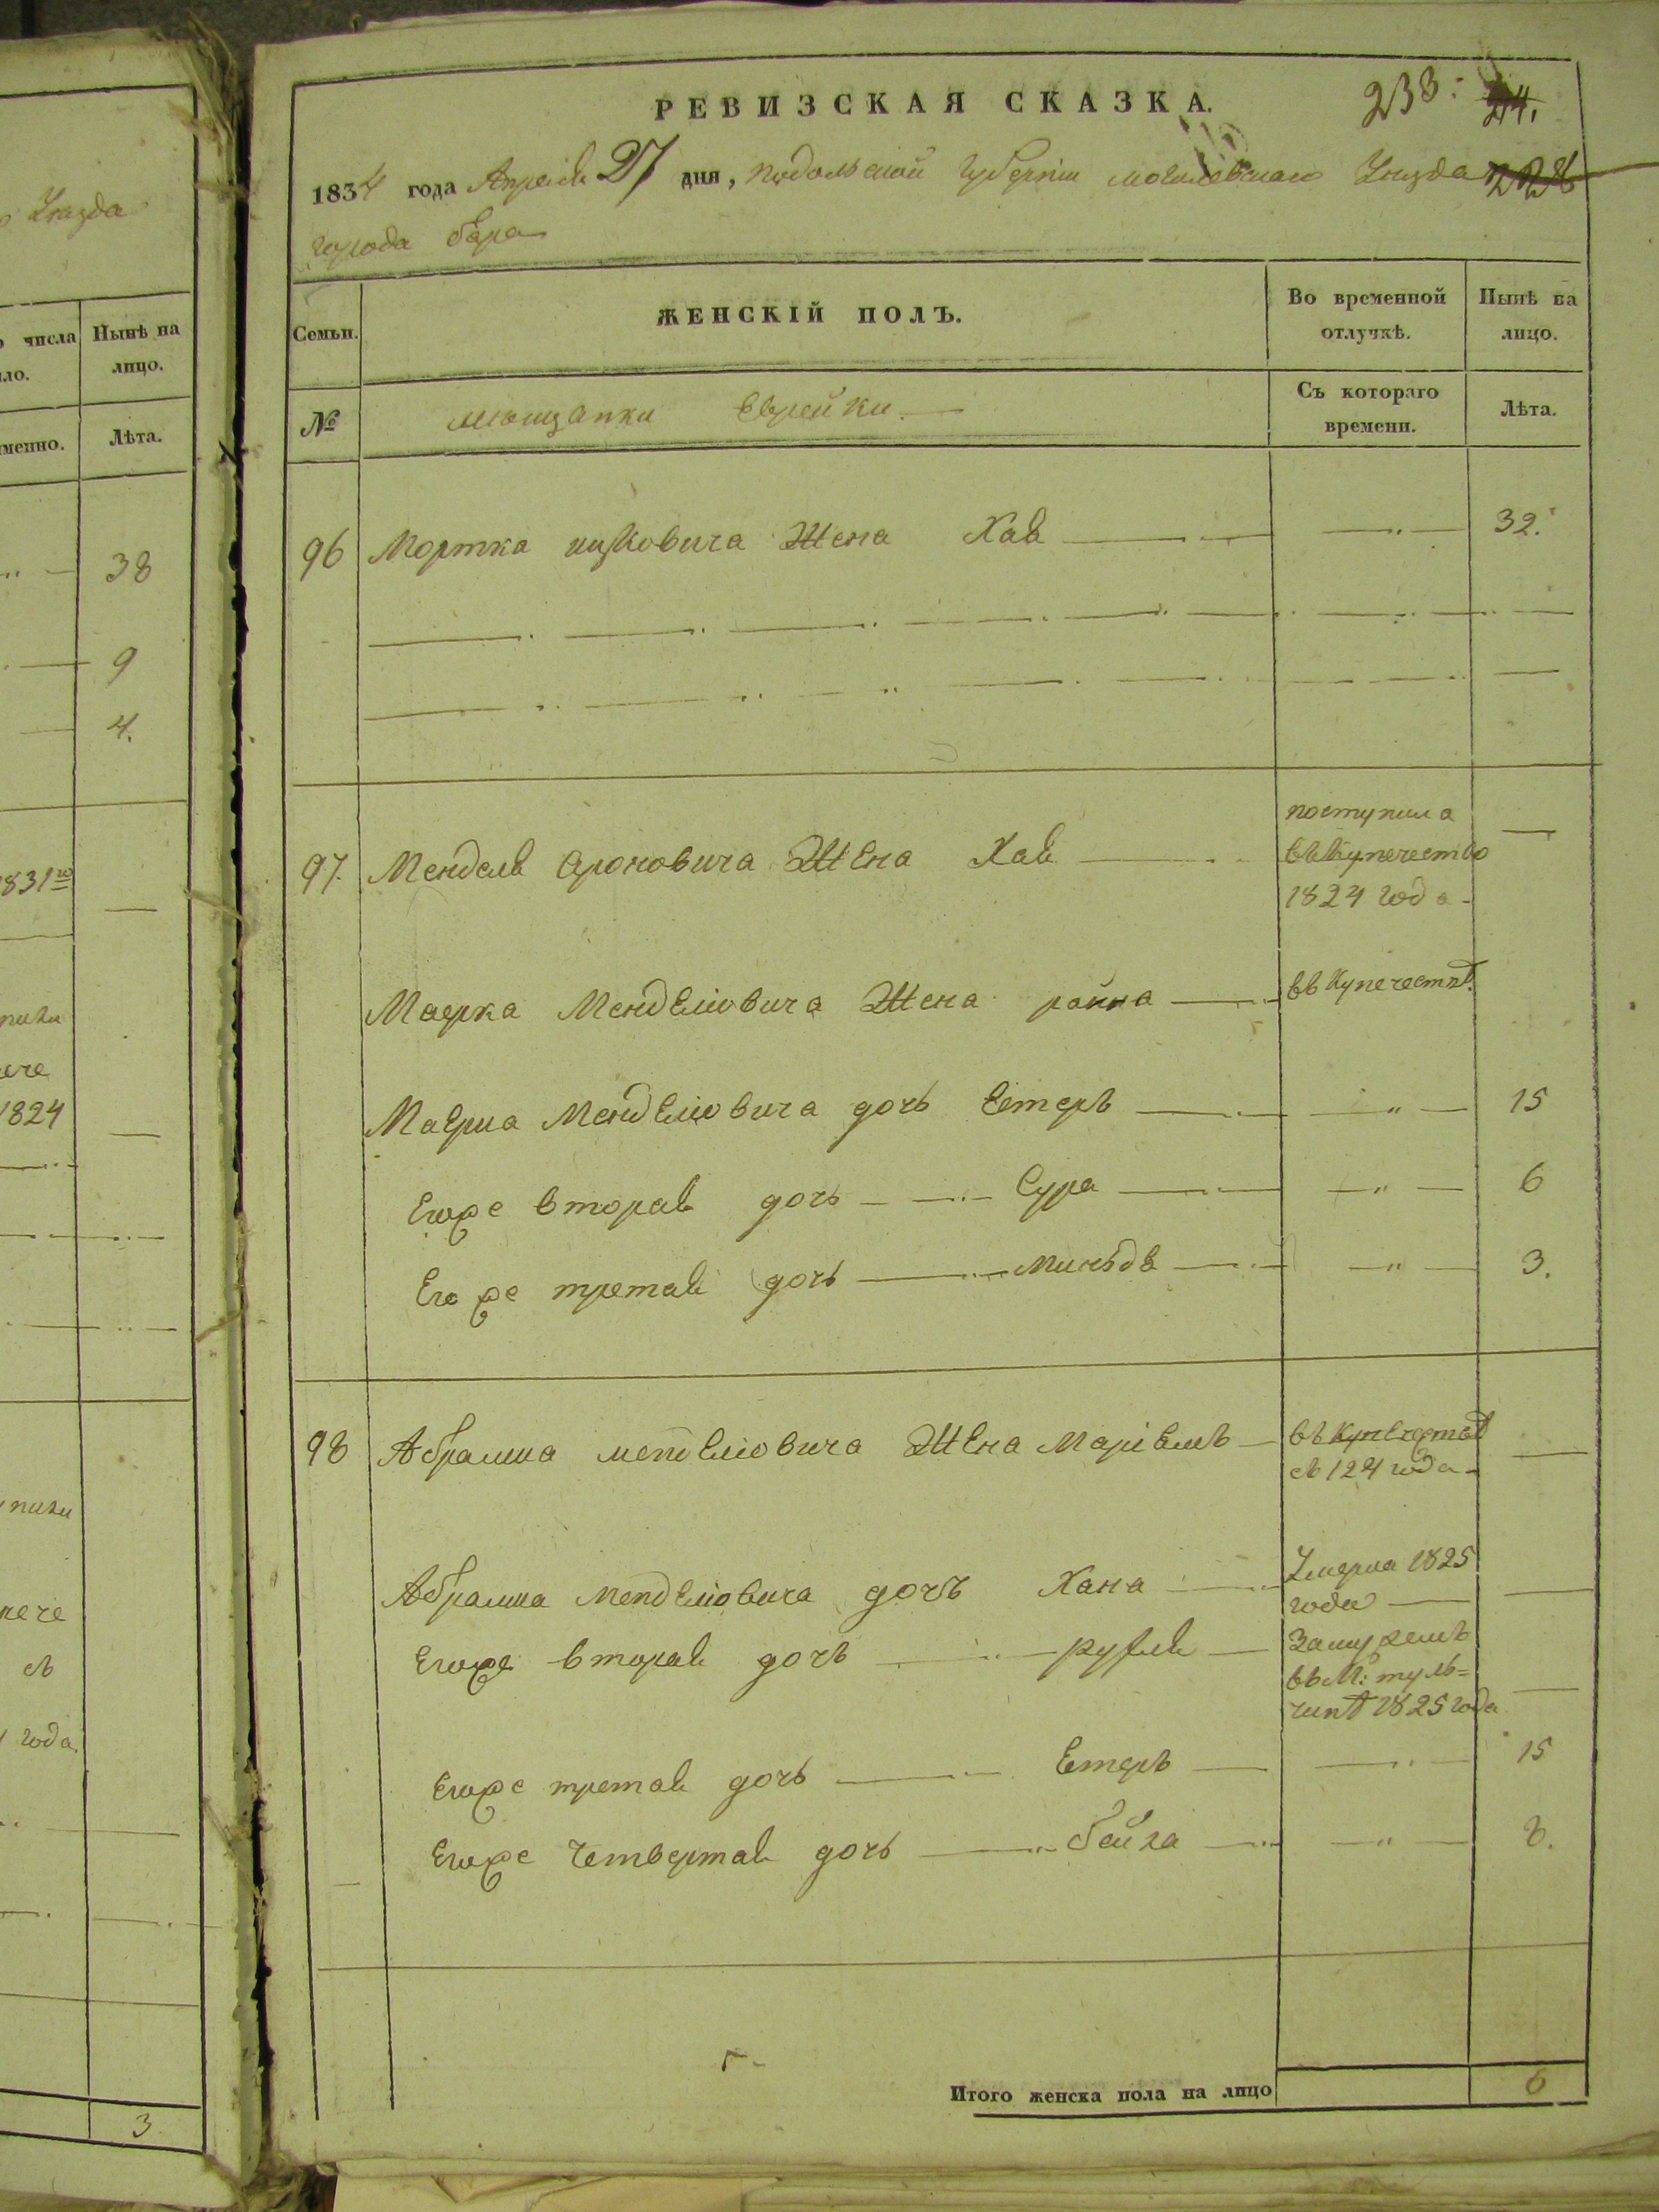 Уѣзда
числа
ло.
Нынѣ на
лицо.
именно.
Лѣта.
38
9
4.
1831го
1824
съ
года
3
РЕВИЗСКАЯ СКАЗКА.
233:
24.
1834 года Апреля 27 дня, Подольской Губерніи Могилевскаго Уѣзда
226
города Бара
Семьи.
ЖЕНСКІЙ ПОЛЪ.
Во временной
отлучкѣ.
Нынѣ на
лицо.
№
мещанки Еврейки
Съ котораго
времени.
Лѣта.
96 Мортка ицковича Жена Хая 32.
97. Менделя Ароновича Жена Хая
поступила
въ Купечество
1824 года
Маерка Менделювича Жена райна въ Купечествѣ
Маерка Менделювича дочь Етеръ 15
Егоже вторая дочь Сура 6
Егоже третая дочь Миньдя 3.
98 Абрамка мендЕлювича ЖЕна Маріемъ
въ Купечествѣ
съ 124 года
Абрамка Менделювича дочь Хана
Умерла 1825
года
Егоже вторая дочь рухля
Замужемъ
въ М: туль=
чинѣ 1825 года
Егоже третая дочь Етеръ 15
Егоже Четвертая дочь бейла 8.
Итого женска пола на лицо 6